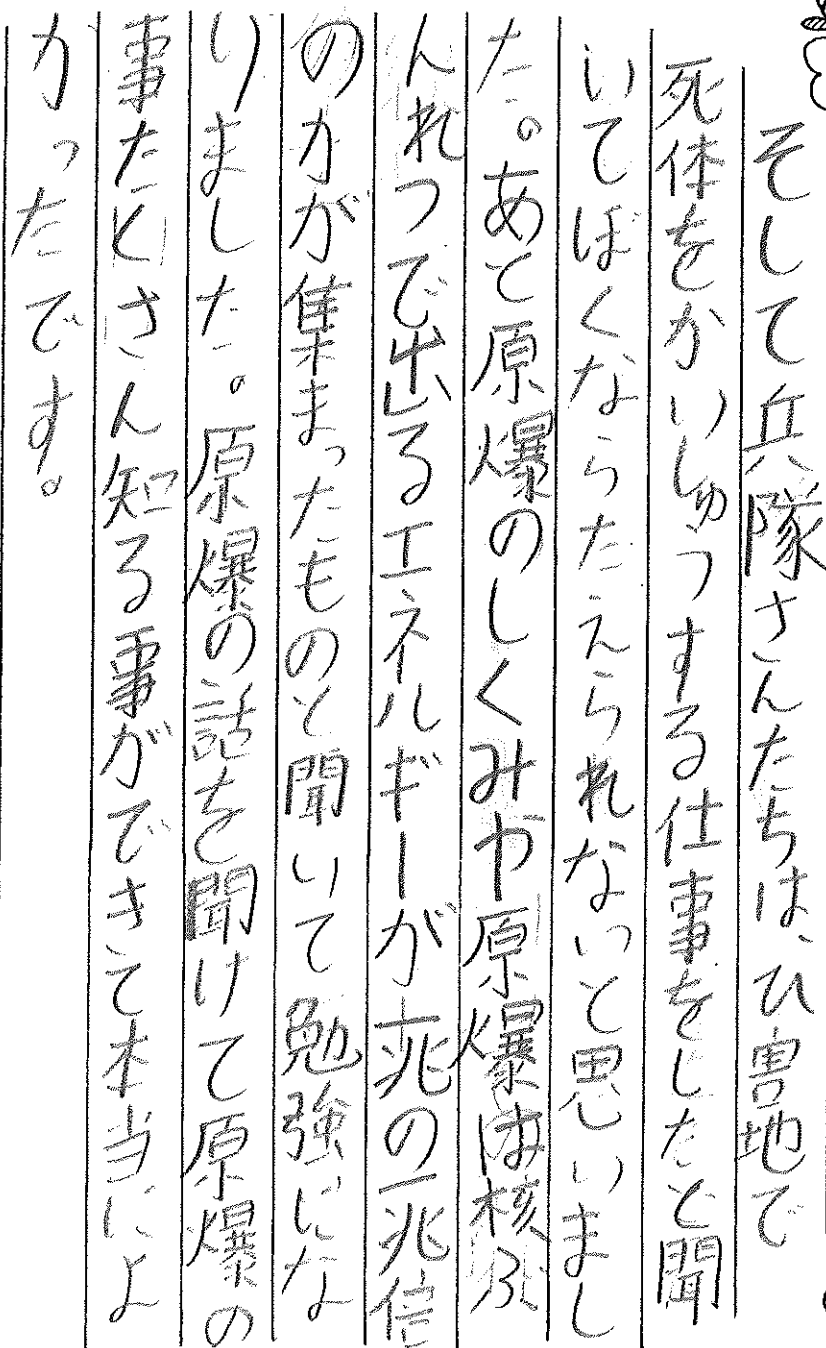 そして兵隊さんたちは、ひ害地で
死体をかいしゅつする仕事をしたと聞
いてぼくならたえられないと思いまし
た。あと原爆のしくみや原爆は核ぶ
んれつで出るエネルギーが一兆の一兆倍
のカが集まったものと聞いて勉強にな
りました。原爆の話を聞けて原爆の
事たくさん知る事ができて本当によ
かったです。